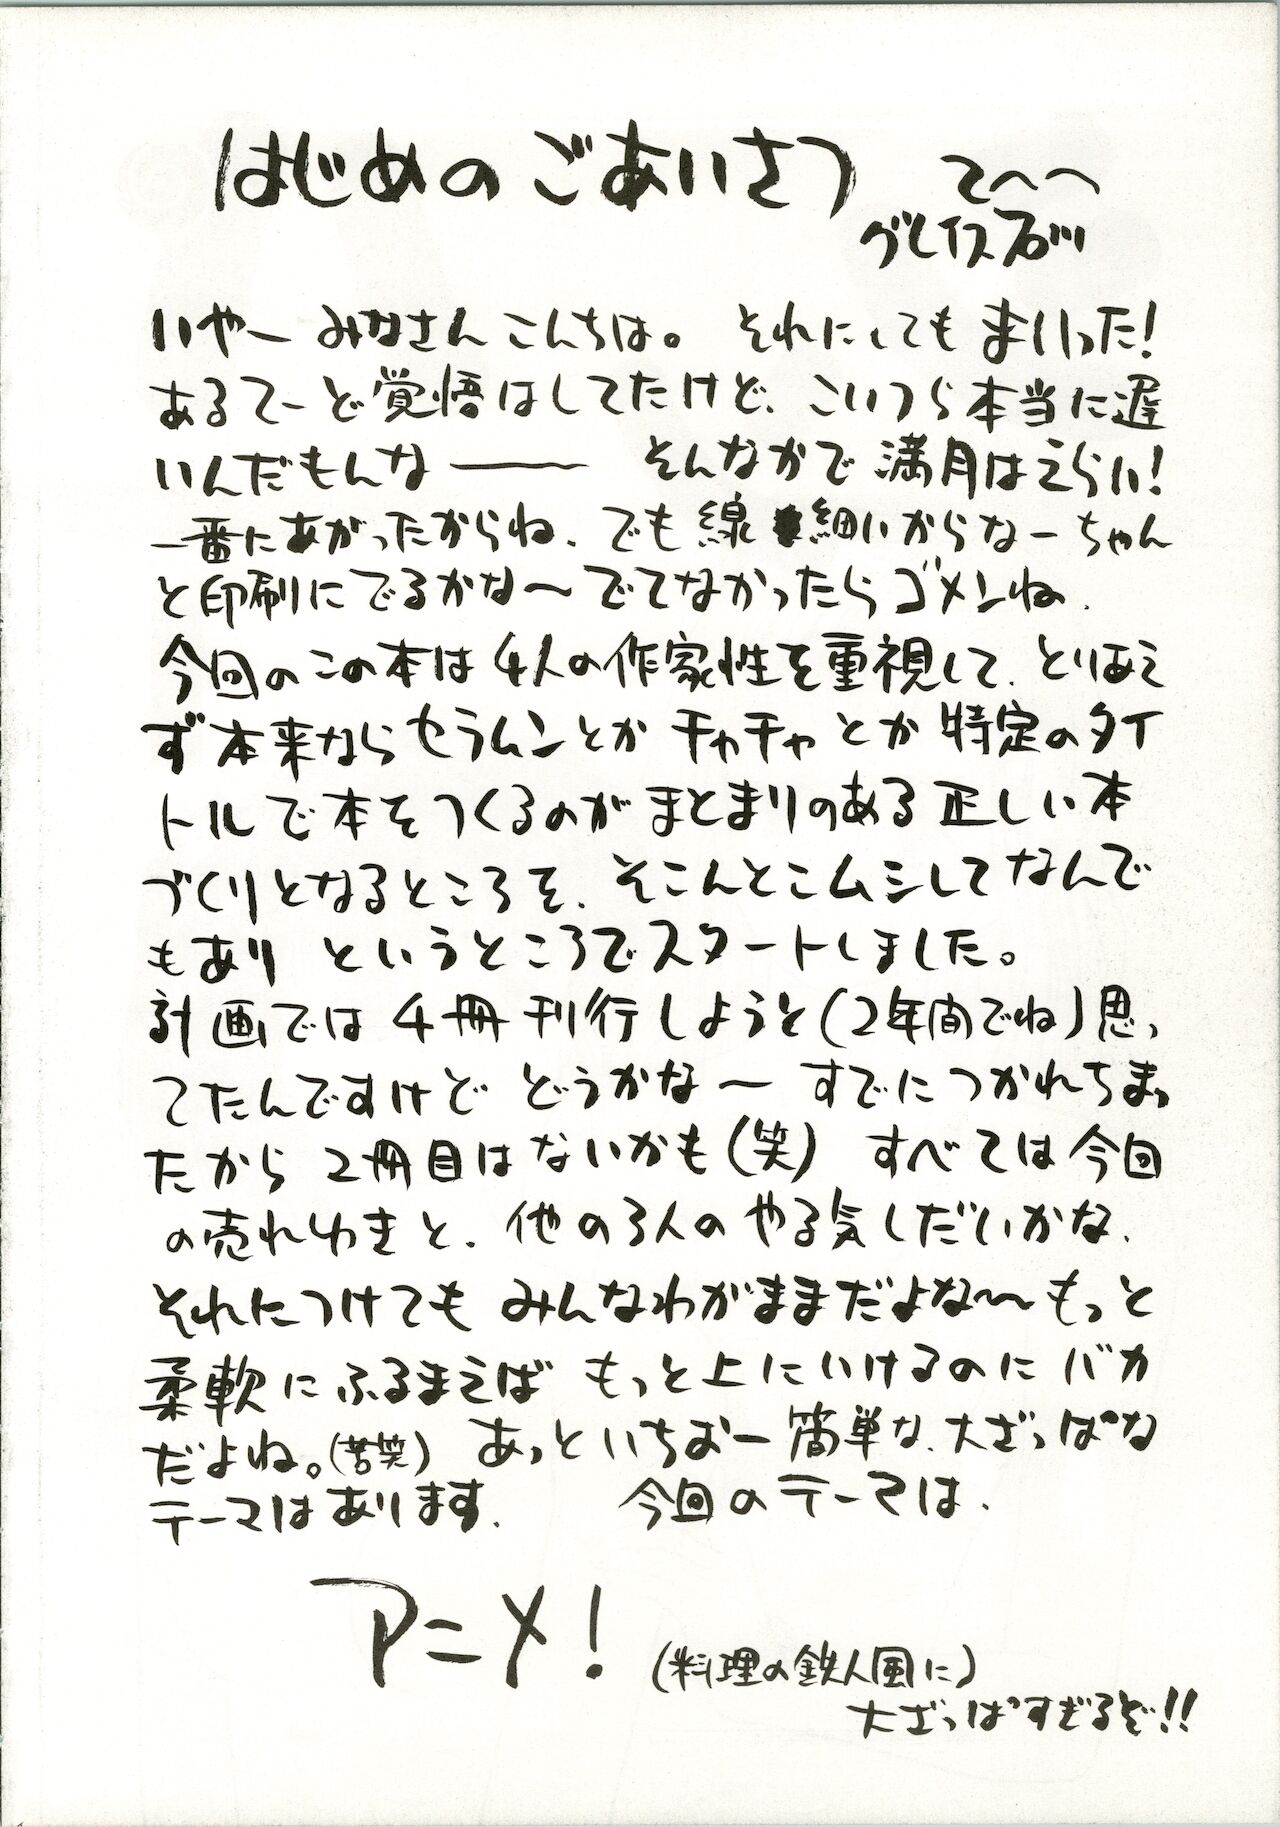 はじめのごあいさつ
てへへ
グレイス
いやー みなさん こんちは。 それにしても まいった!
あるてーど覚悟はしてたけど、こいつら本当に遅
いんだもんな―― そんなかで 満月はえらい!
一番にあがったからね、でも線 細いからなーちゃん
と印刷にでるかな〜 でてなかったらゴメンね、
今回のこの本は4人の作家性を重視して、とりあえ
ず本来ならセラムンとか チャチャとか 特定のタイ
トルで本をつくるのがまとまりのある正しい本
づくりとなるところを、そこんとこムシしてなんで
もあり というところでスタートしました。
計画では4冊刊行しようと(2年間でね)思っ
てたんですけど どうかな〜 すでにつかれちまっ
たから 2冊目はないかも(笑) すべては今回
の売れゆきと、他の3人のやる気しだいかな、
それにつけても みんなわがままだよな〜もっと
柔軟にふるまえば もっと上にいけるのにバカ
だよね。(苦笑) あっといちおー簡単な、大ざっぱな
テーマはあります、 今回のテーマは、
アニメ!
(料理の鉄人風に)
大ざっぱすぎるぞ!!